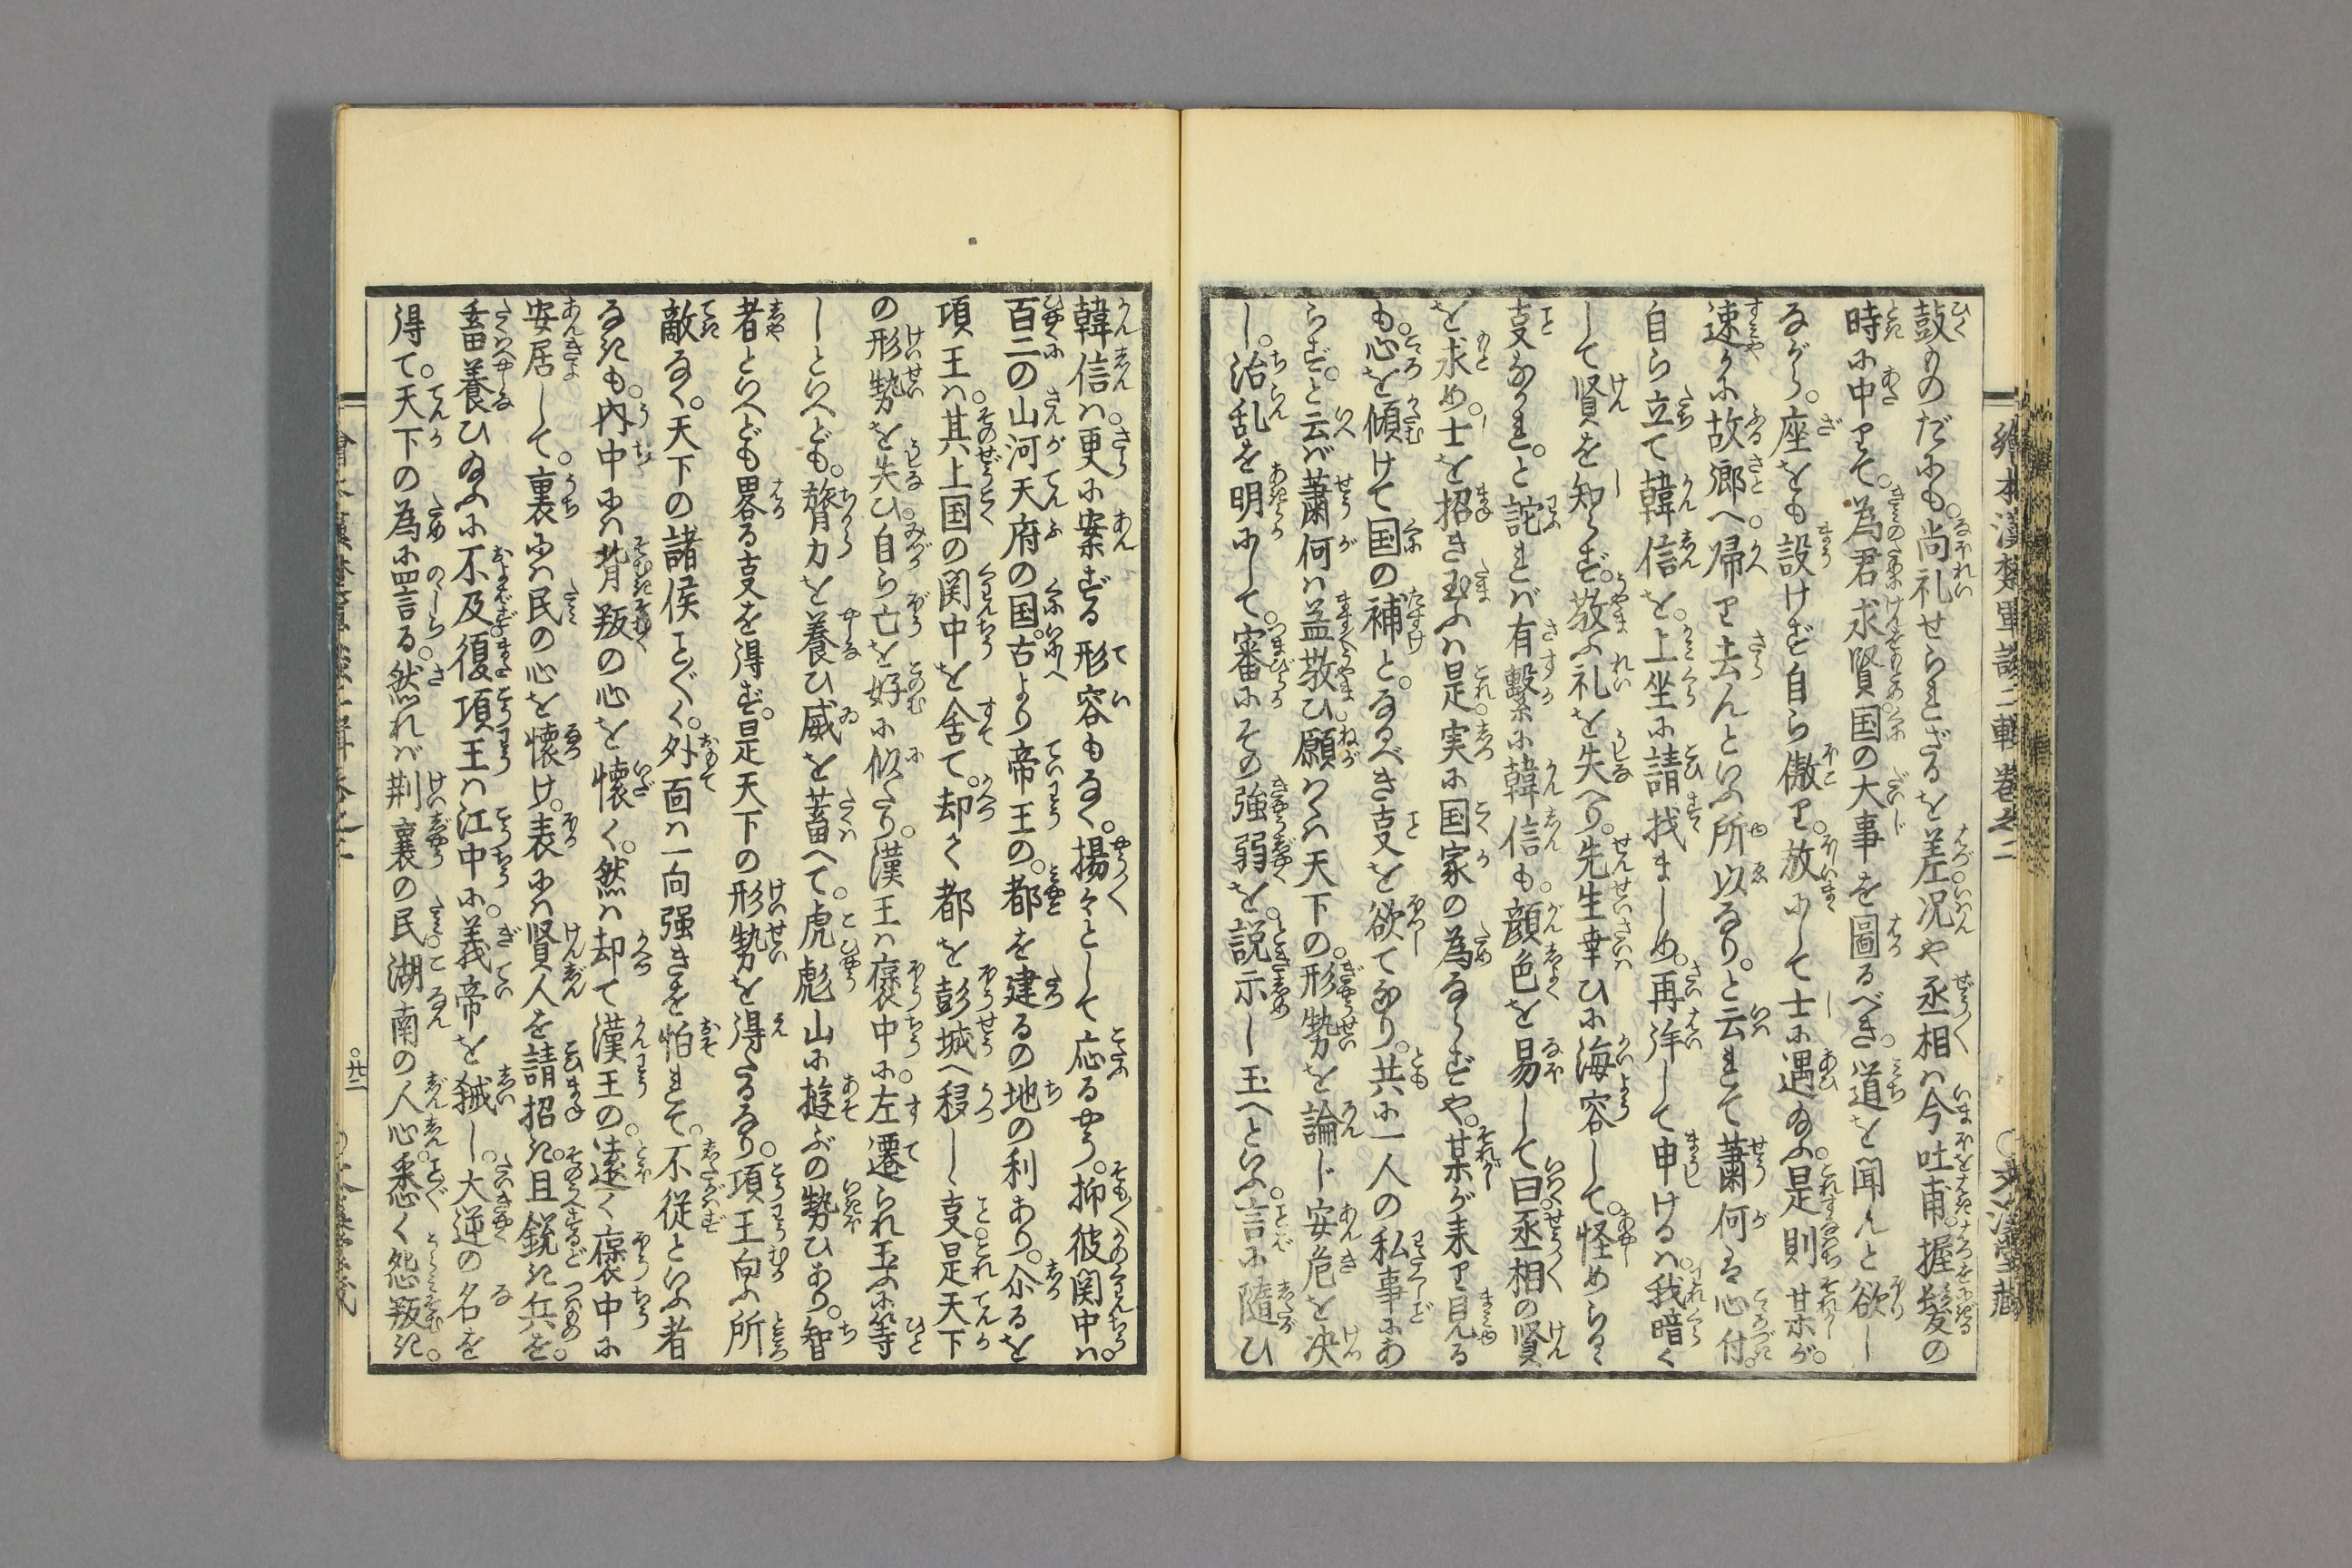 鼓ものだにも。尚礼せられざるを差。况や丞相は今吐甫。握髪の
時に中りて。為君求賢。国の大事を圖るべき。道を聞んと欲し
ながら。座をも設けず自ら傲り。放にして士に遇ひ給ふ。是則某が。
速かに故郷へ。帰り去んといふ所以なり。と云れて蕭何は心付。
自ら立て韓信を。上坐に請找ましめ。再拝して申けるは。我暗く
して賢を知らず。敬ふ礼を失へり。先生幸ひに海容して。怪めらるゝ
事なかれ。と詫れば有繫に韓信も。顔色を易して曰。丞相の賢
を求め。士を招き玉ふは是。実に国家の為ならずや。某が来り見る
も。心を傾けて国の補と。なるべき事を欲てなり。共に一人の私事にあ
らず。と云ば蕭何は益敬ひ。願はくは天下の。形勢を論じ安危を决
し。治乱を明にして。審にその強弱を。説示し玉へといふ。言に随ひ
韓信は。更に案ずる形容もなく。揚々として応るやう。抑彼関中は。
百二の山河天府の国。古より帝王の。都を建るの地の利あり。尒るを
項王は。其上国の関中を舍て。却て都を彭城へ移し。事是天下
の形勢を失ひ。自ら亡を好に似たり。漢王は褒中に。左遷られ玉ふに等
しといへども。膂力を養ひ威を蓄へて。虎彪山に遊ぶの勢ひあり。智
者といへども畧る事を得ず。是天下の形勢を得たるなり。項王向ふ所
敵なく。天下の諸侯こと〴〵く。外面は一向強きを怕れて。不従といふ者
なきも。内中には背叛の心を懐く。然は却て漢王の。遠く褒中に
安居して。裏には民の心を懐け。表には賢人を請招き。且鋭き兵を。
畜養ひ給ふに不及。復項王は江中に。義帝を弑し。大逆の名を
得て。天下の為に罵言る。然れば荆襄の民。湖南の人心。悉く怨叛き。
繪本漢楚軍談二輯卷之二
廿二